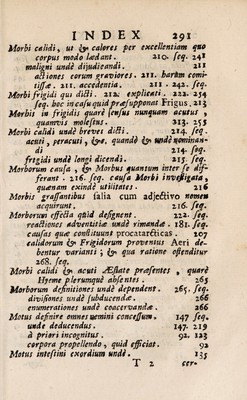 INDEX 291
Morbi calidi, us & calores per excellentiam quo
corpus modo lædant. 210. seq. 241
maligni undè dijudicandi. 211
actiones eorum graviores. 211. harum comi-
tissæ. 211. accedentia. 211. 242. seq.
Morbi frigidi qui dicti. 212. explicati. 222. 254
seq. hoc in casu quid præsupponat Frigus. 213
Morbis in frigidis quarè sensus nunquam acutus,
quamvis molestus. 213. 255
Morbi calidi undè breves dicti. 214. seq.
acuti, peracuti, &c. quandò & undè nominan-
di 214. seq.
frigidi undè longi dicendi. 215. seq.
Morborum causa, & Morbus quantum inter se dif-
ferant. 216. seq. causa Morbi investigata,
quænam exindè utilitates. 216
Morbis grassantibus salia cum adjectivo nomen
acquirunt. 216. seq.
Morborum effecta quid designent. 222. seq.
reactiones adventitiæ undè rimandæ. 181. seq.
causas quæ constituunt procatarcticas. 207
calidorum & Frigidorum proventus Aeri de-
bentur varianti; & qua ratione ostenditur
268. seq.
Morbi calidi & acuti Æstate præsentes, quarè
Hyeme plerumquè absentes. 265
Morborum definitiones undè dependent. 265. seq.
divisiones undè subducendæ. 266
enumerationes undè coacervandæ. 266
Motus definire omnes nemini concessum. 147 seq.
unde deducendus. 147. 219
à priori incognitus. 92. 123
corpora propellendo, quid efficiat. 92
Motus intestini exordium undè. 135
T 2 cer-